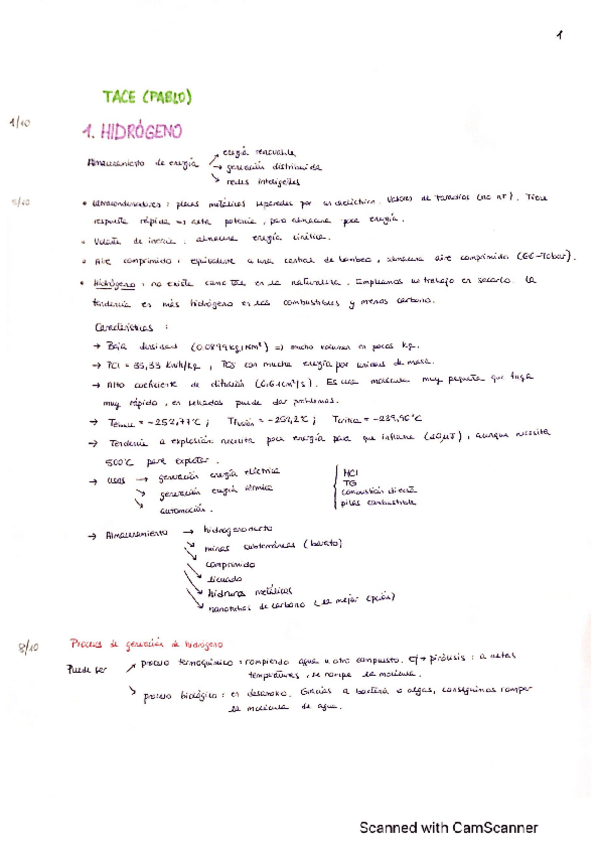 1
TACE (PABLO)
1/10
1. HIDRÓGENO
Almacenamiento de energía → energía renovable
→ generación distribuida
→ redes inteligentes
• Ultracondensadores: placas metálicas separadas por un dieléctrico. Valores de faradios (no nF). Tiene
respuesta rápida => alta potencia, pero almacena poca energía.
• Volante de inercia: almacena energía cinética.
• Aire comprimido: equivalente a una central de bombeo, almacena aire comprimido (66-70bar).
• Hidrógeno: no existe como tal en la naturaleza. Empleamos un trabajo en sacarlo. La
tendencia es más hidrógeno en los combustibles y menos carbono.
Características:
→ Baja densidad (0.0899kg/Nm³) => mucho volumen en pocos kg.
→ PCI = 33,33 kWh/kg, con mucha energía por unidad de masa.
→ Alto coeficiente de difusión (0.61cm²/s). Es una molécula muy pequeña que fuga
muy rápido, en sellados puede dar problemas.
→ = -252,77°C; Tfusión = -259,2°C; Tcrítica = -239,96°C
→ Tendencia a explosión necesita poca energía para que inflame (20μJ), aunque necesita
500°C para explotar.
→ Usos → generación energía eléctrica
→ generación energía térmica
→ automoción.
MCI
TG
combustión directa
pilas combustible
→ Almacenamiento → hidrogenoducto
→ minas subterráneas (barato)
→ comprimido
→ licuado
→ hidruros metálicos
→ nanotubos de carbono (la mejor opción)
8/10
Procesos de generación de hidrógeno
Puede ser → proceso termoquímico: rompiendo agua u otro compuesto. → pirólisis: a altas
temperaturas, se rompe la molécula.
→ proceso biológico: en desarrollo. Gracias a bacterias o algas, conseguimos romper
la molécula de agua.
Scanned with CamScanner